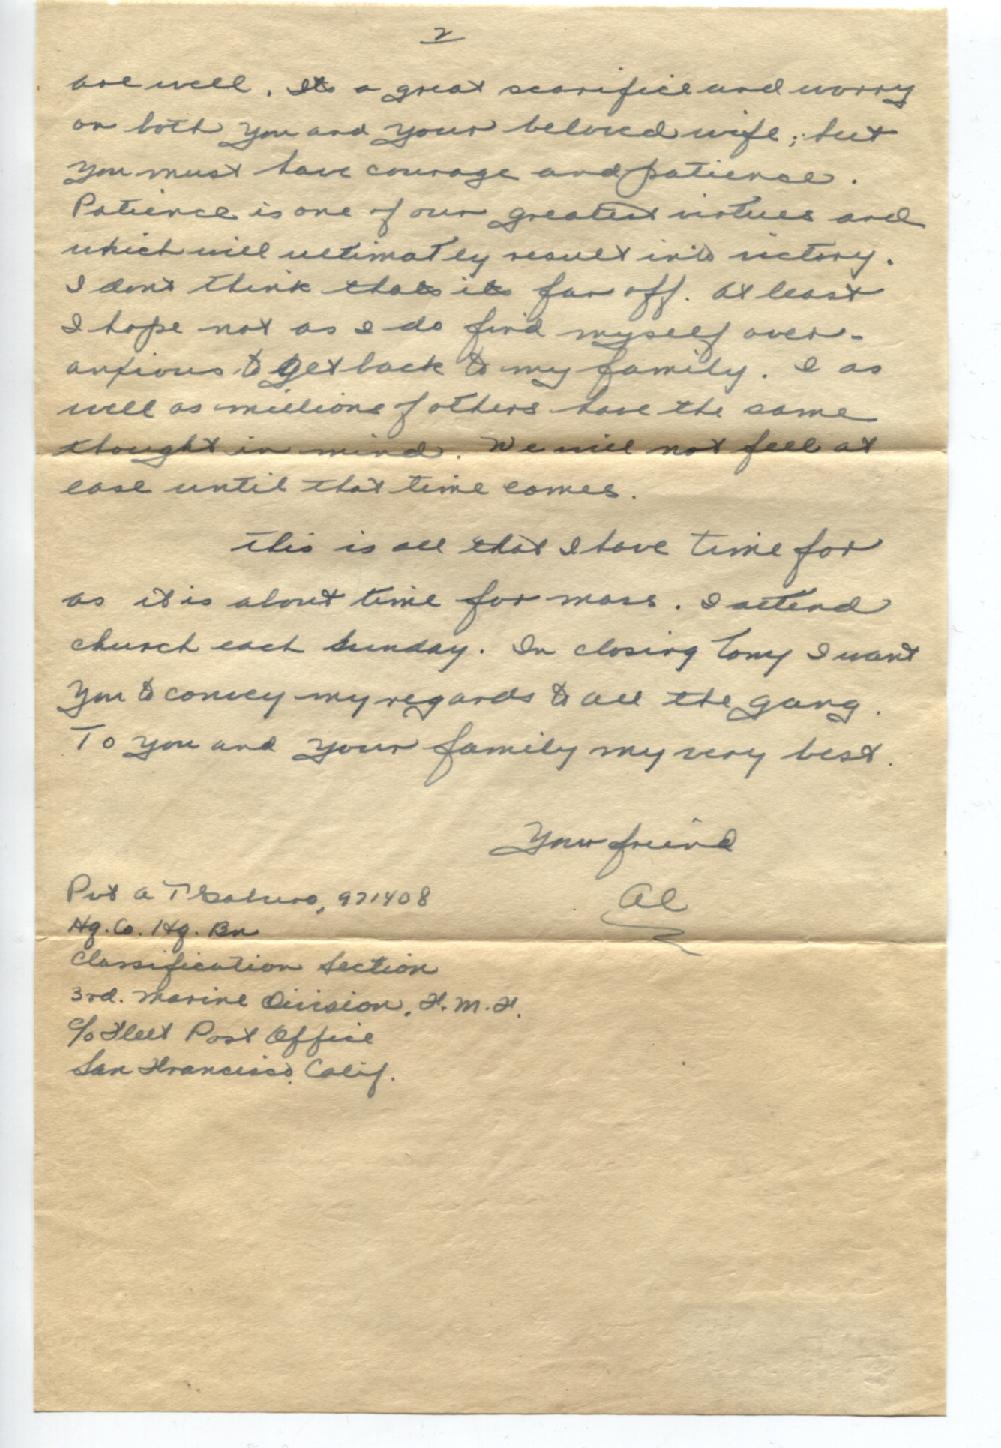 2
are well. Its a great scarifice and worry
on both you and your beloved wife; but
you must have courage and patience.
Patience is one of our greatest virtues and
which will ultimately result into victory.
I dont think thats its far off. At least
I hope not as I do find myself over-
anxious to get back to my family. I as
well as millions of others have the same
thought in mind. We will not feel at
ease until that time comes.
This is all that I have time for
as it is about time for mass. I attend
church each Sunday. In closing Tony I want
you to convey my regards to all the gang.
To you and your family my very best.
Your friend
Al
Pvt A T 971408
Hq. Co. Hq. Bn
Classification Section
3rd. Marine Division, F.M.F.
c/o Fleet Post Office
San Francisco, Calif.